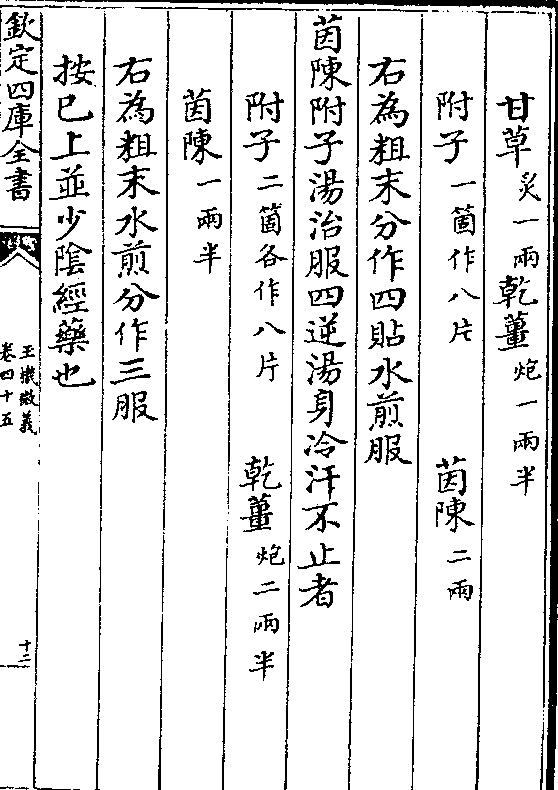 甘草炙一兩乾薑炮一兩半
附子一箇作八片 茵陳二兩
右為粗末分作四貼水煎服
茵陳附子湯治服四逆湯身冷汗不止者
附子二箇各作八片 乾薑炮二兩半
茵陳一兩半
右為粗末水煎分作三服
按已上並少陰經藥也
欽定四庫全書
玉機微義
卷四十五
十二